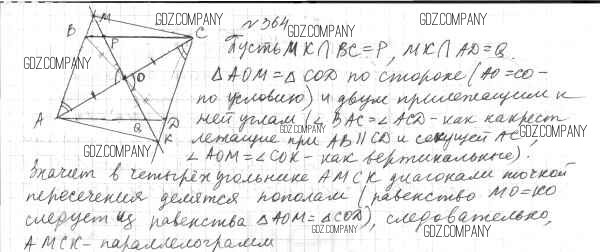 N 364
Пусть MK∩BC=P, MK∩AD=Q.
△AOM=△COD по стороне (AO=CO-
по условию) и двум прилежащим к
ней углам (∠BAC=∠ACD-как накрест
лежащие при AB||CD и секущей AC,
∠AOM=∠COK-как вертикальные).
Значит в четырёхугольнике AMCK диагонали точкой
пересечения делятся пополам (равенство MO=KO
следует из равенства △AOM=△COD), следовательно,
AMCK-параллелограмм
M
B
P
C
O
A
Q
D
K
GDZ.COMPANY
GDZ.COMPANY
GDZ.COMPANY
GDZ.COMPANY
GDZ.COMPANY
GDZ.COMPANY
GDZ.COMPANY
GDZ.COMPANY
GDZ.COMPANY
GDZ.COMPANY